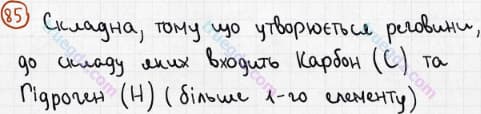 85 Складна, тому що утворюється реговини,
до складу яких входить Карбон (С) та
Гідроген (Н) (більше 1-го елементу)